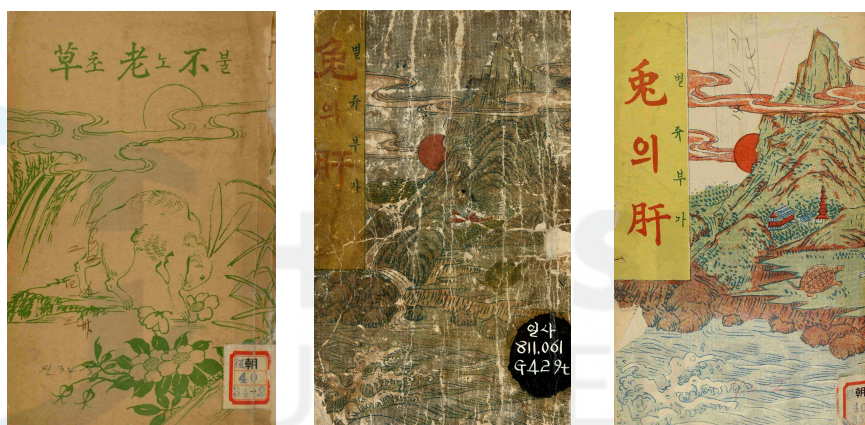 不불 老노 草초
朝
40
兎의肝
별쥬부가
일사
811.061
G429t
兎의肝
별쥬부가
朝